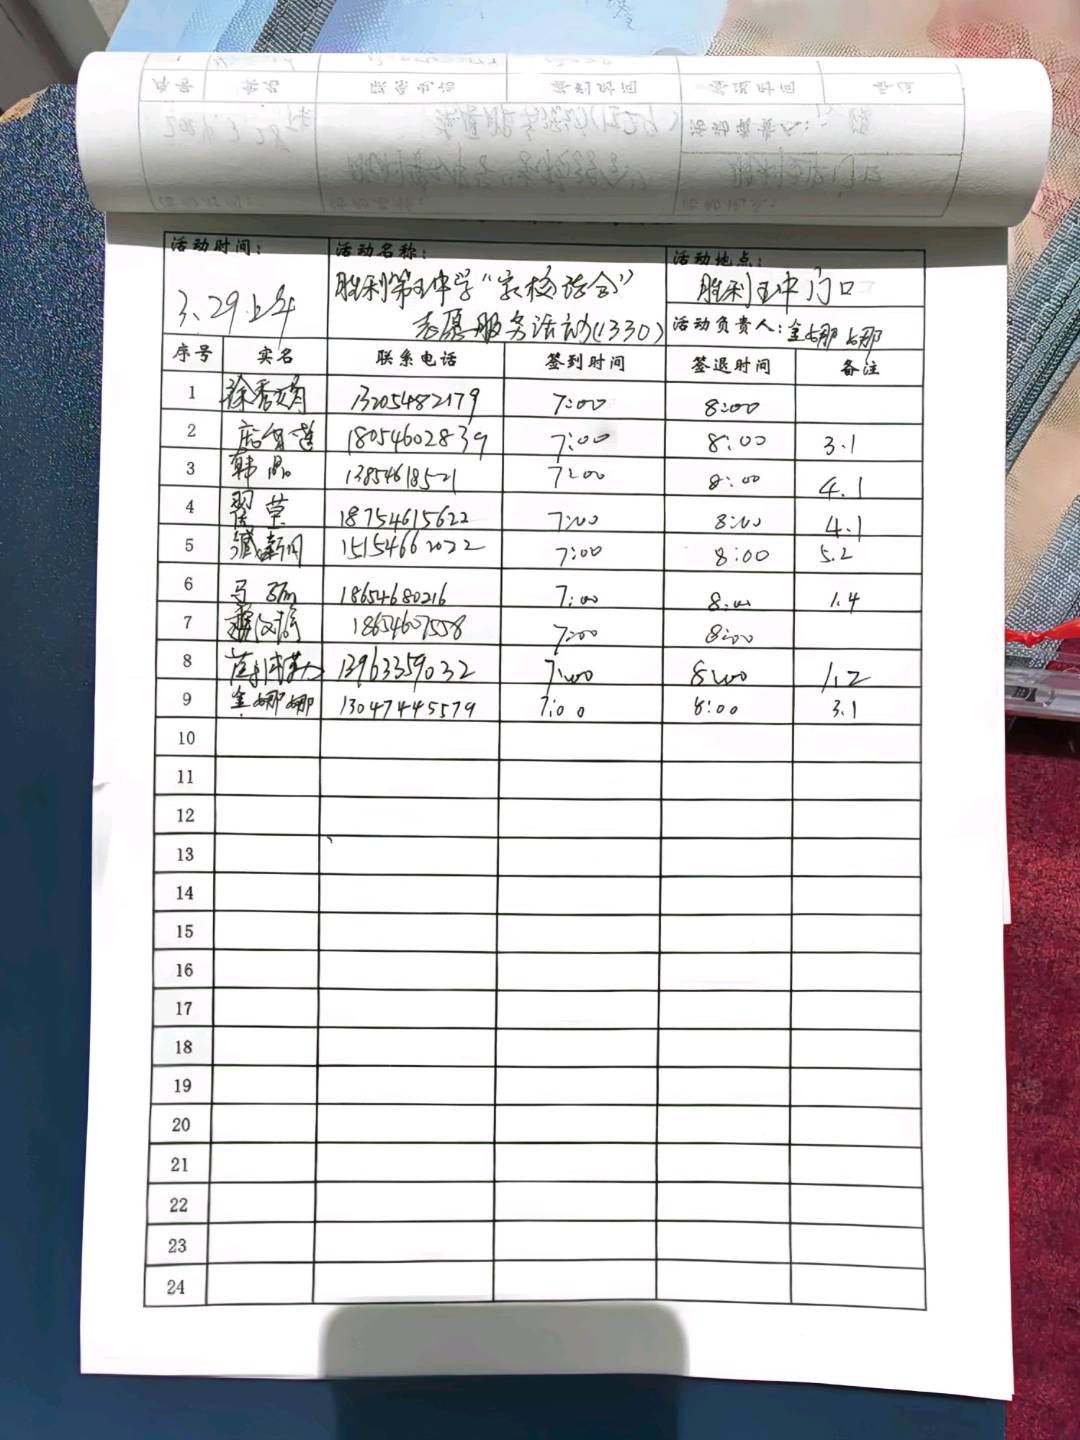 活动时间： 活动名称： 活动地点：
3.29上午 胜利第五中学“家校联合” 胜利五中门口
志愿服务活动(1330) 活动负责人：金娜娜
序号 实名 联系电话 签到时间 签退时间 备注
1 徐秀娟 13205482179 7:00 8:00
2 18054602839 7:00 8:00 3.1
3 韩晶 13854618521 7:00 8:00 4.1
4 翟草 18754615622 7:00 8:00 4.1
5 15154662022 7:00 8:00 5.2
6 马 18654680216 7:00 8:00 1.4
7 18654607558 7:00 8:00
8 13963359032 7:00 8:00 1.2
9 金娜娜 13047445579 7:00 8:00 3.1
10
11
12
13
14
15
16
17
18
19
20
21
22
23
24